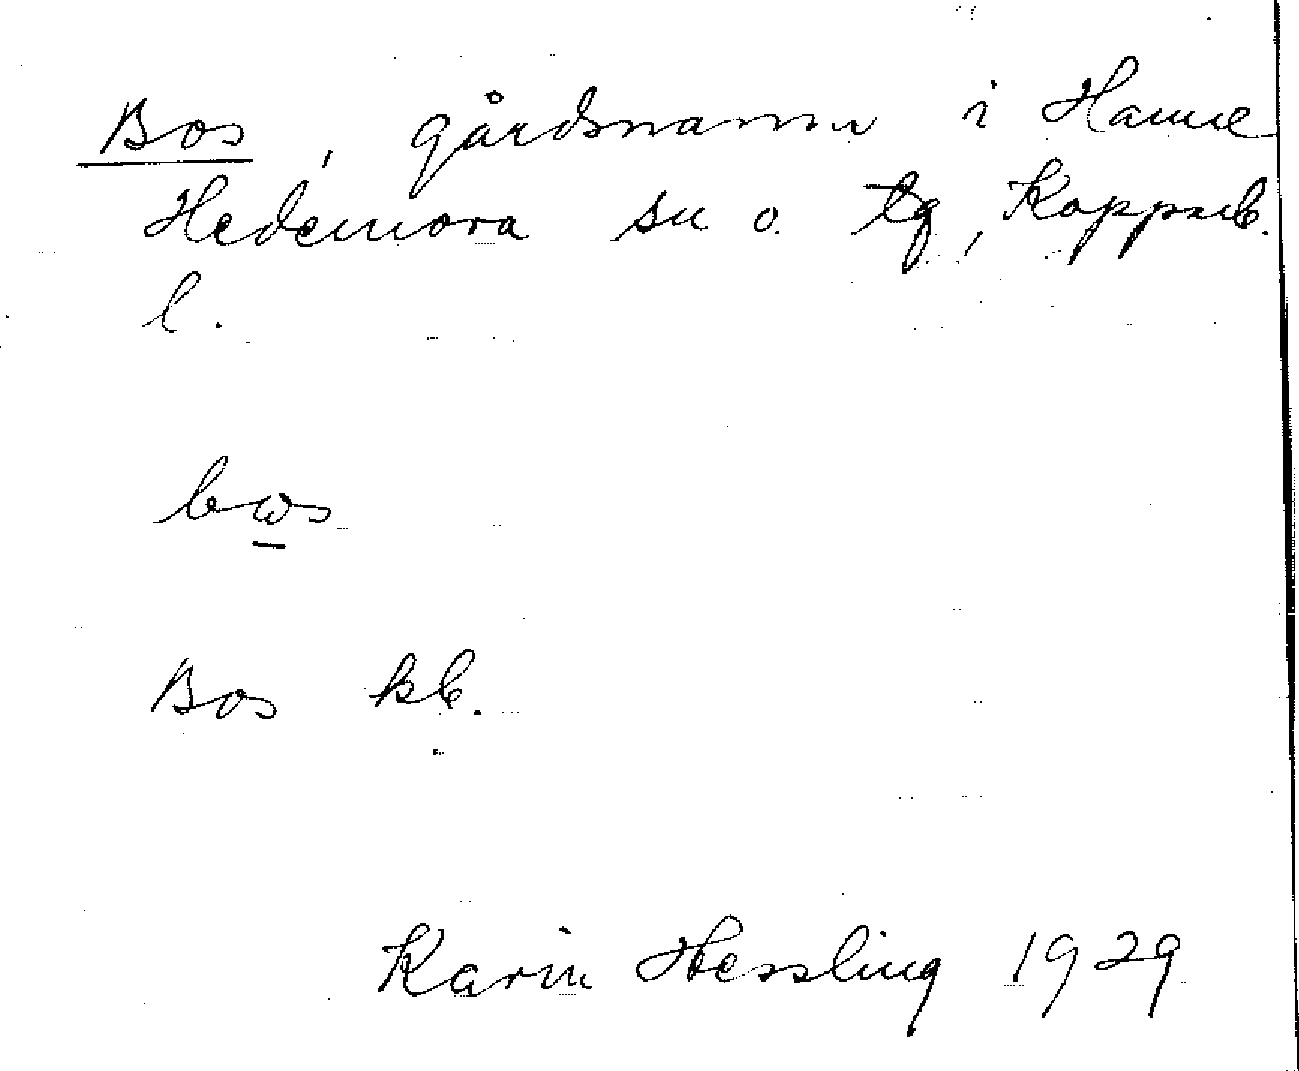 Bos, gårdsnamn i Hamre
Hedemora sn o. tg, Kopparb.
l.
bωs
Bos kb.
Karin Hessling 1929